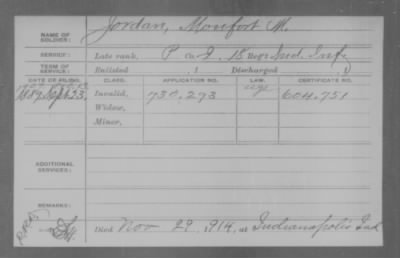 NAME OF SOLDIER: Jordan, Monfort M.
SERVICE: Late rank, P Co. I, 18 Reg't Ind. Inf.
TERM OF SERVICE: Enlisted , 1 Discharged , 1
DATE OF FILING. CLASS. APPLICATION NO. LAW. CERTIFICATE NO.
1889 Sept 23, Invalid, 730,273 604,751
Widow,
Minor,
ADDITIONAL SERVICES:
REMARKS:
Died Nov 29, 1914, at Indianapolis Ind